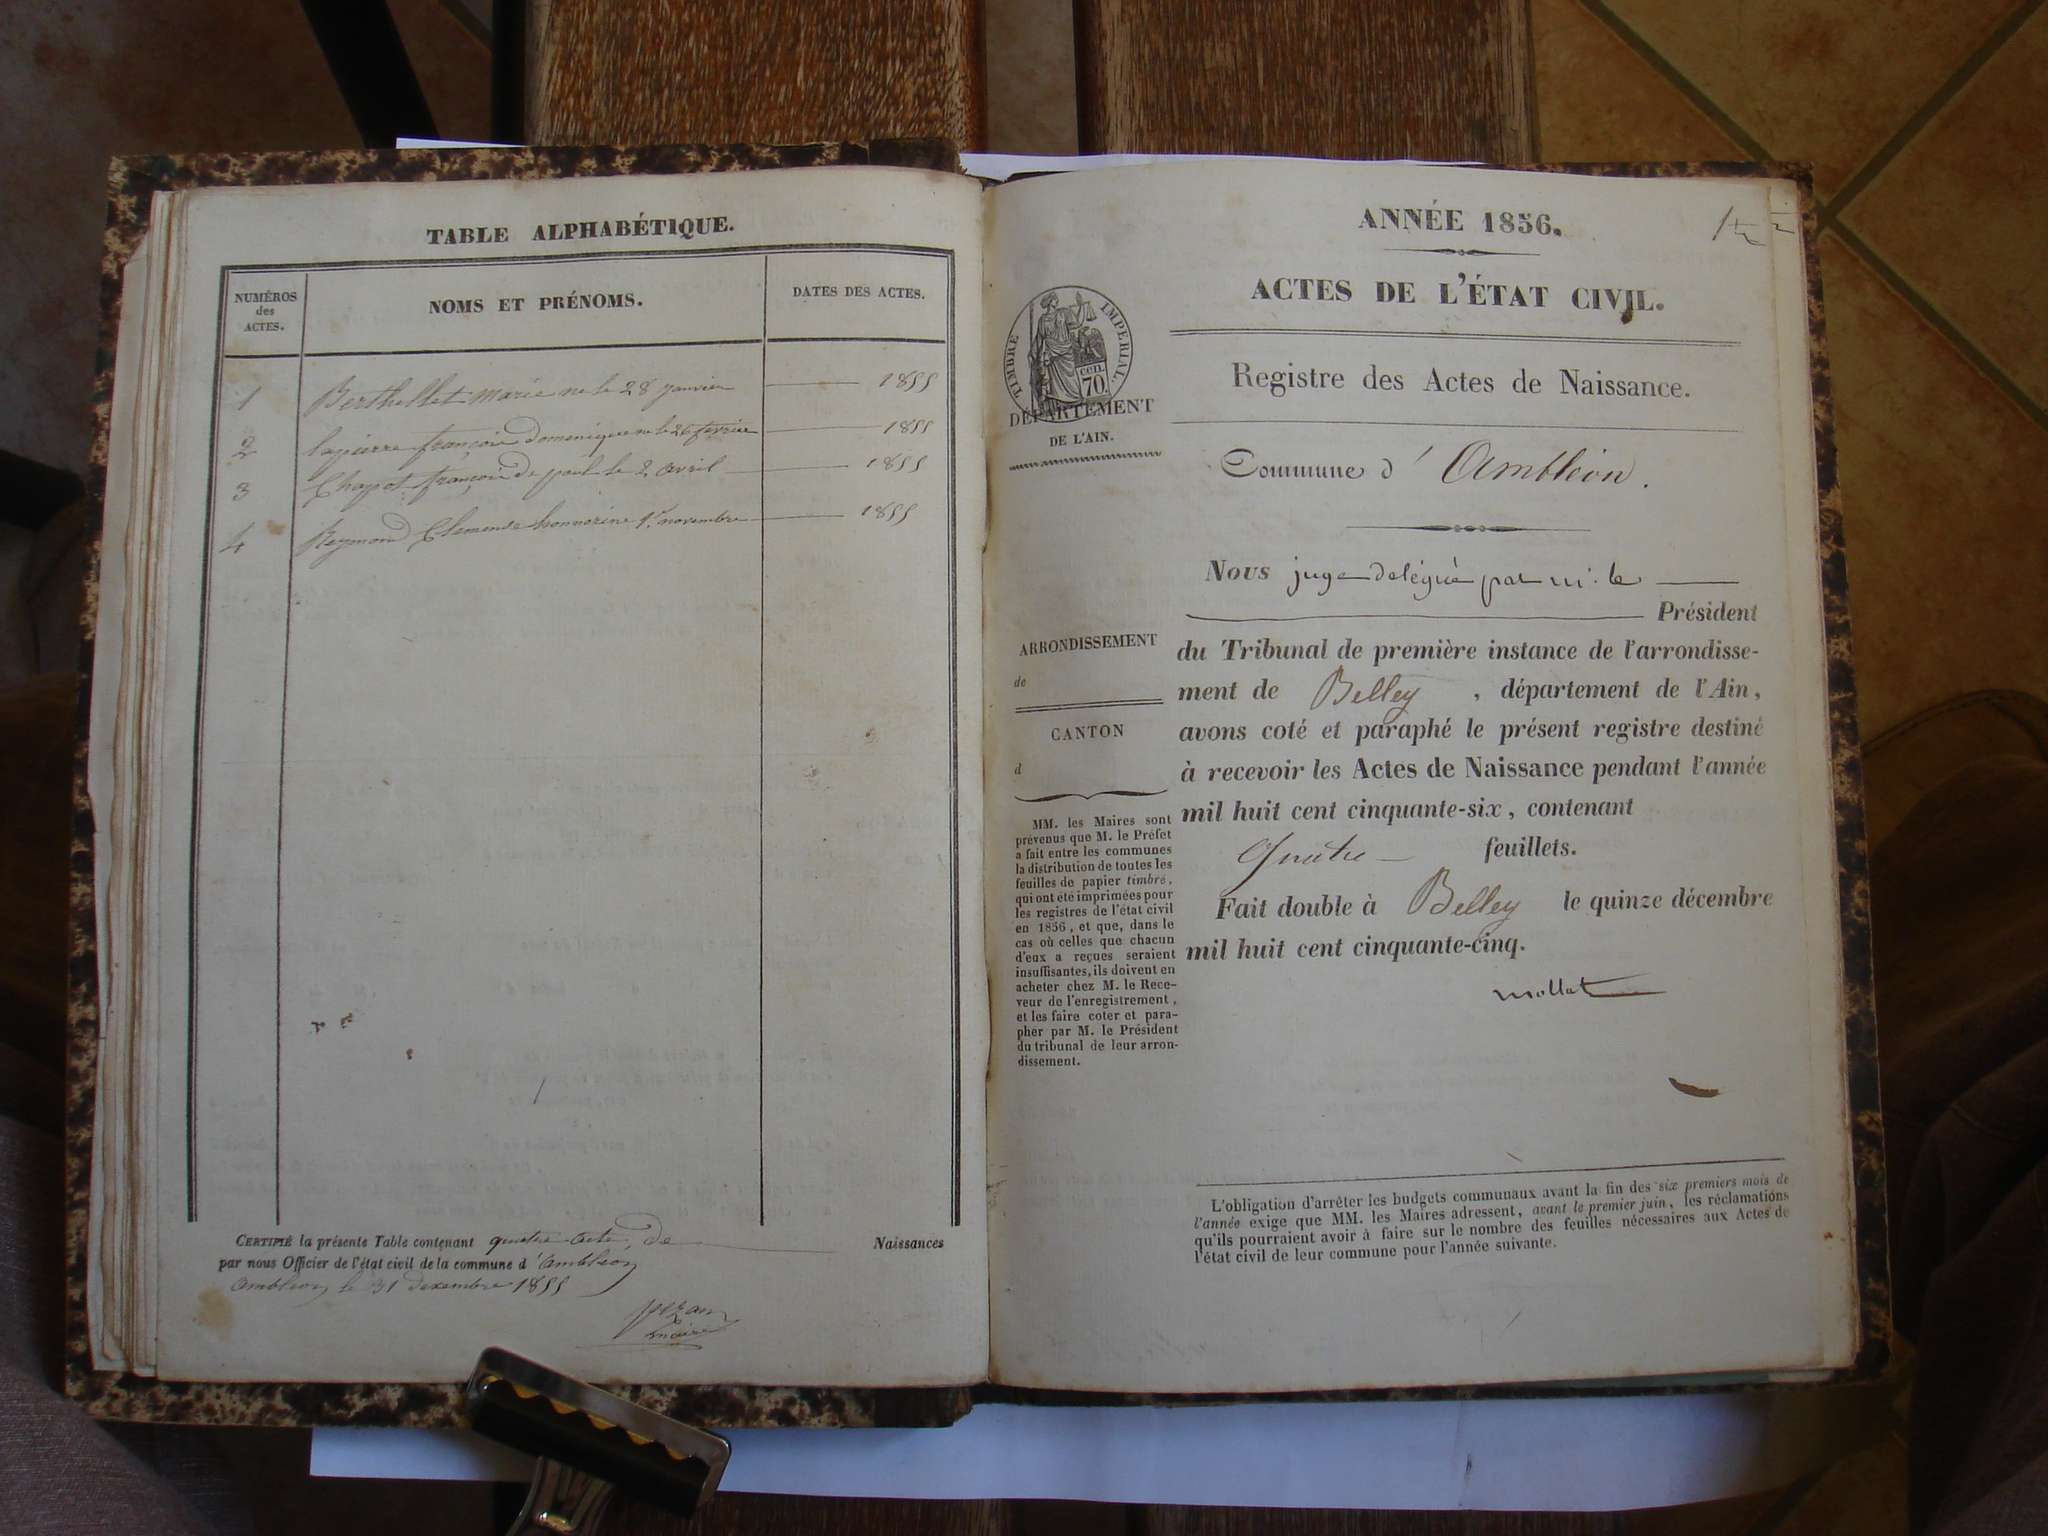 TABLE ALPHABÉTIQUE.
NUMÉROS
des
ACTES.
NOMS ET PRÉNOMS.
DATES DES ACTES.
1 Berthellet marie ne le 28 janvier 1855
2 lapierre françois domenique ne le 26 fevrier 1855
3 Chapot françois de paul le 2 avril 1855
4 Reymond Clemence honnorine 1er novembre 1855
CERTIFIÉ la présente Table contenant quatre acte, de Naissances
par nous Officier de l'état civil de la commune d'Ambléon
Ambléon le 31 dexembre 1855
maire
ANNÉE 1856.
ACTES DE L'ÉTAT CIVIL.
TIMBRE IMPÉRIAL
CEN.
70
DÉPARTEMENT
DE L'AIN.
Registre des Actes de Naissance.
Commune d' Ambléon.
NOUS juge délégué par m. le
Président
du Tribunal de première instance de l'arrondisse-
ment de Belley, département de l'Ain,
avons coté et paraphé le présent registre destiné
à recevoir les Actes de Naissance pendant l'année
mil huit cent cinquante-six, contenant
Quatre feuillets.
Fait double à Belley le quinze décembre
mil huit cent cinquante-cinq.
mollat
ARRONDISSEMENT
de
CANTON
d
MM. les Maires sont
prévenus que M. le Préfet
a fait entre les communes
la distribution de toutes les
feuilles de papier timbré,
qui ont été imprimées pour
les registres de l'état civil
en 1856, et que, dans le
cas où celles que chacun
d'eux a reçues seraient
insuffisantes, ils doivent en
acheter chez M. le Rece-
veur de l'enregistrement,
et les faire coter et para-
pher par M. le Président
du tribunal de leur arron-
dissement.
L'obligation d'arrêter les budgets communaux avant la fin des six premiers mois de
l'année exige que MM. les Maires adressent, avant le premier juin, les réclamations
qu'ils pourraient avoir à faire sur le nombre des feuilles nécessaires aux Actes de
l'état civil de leur commune pour l'année suivante.